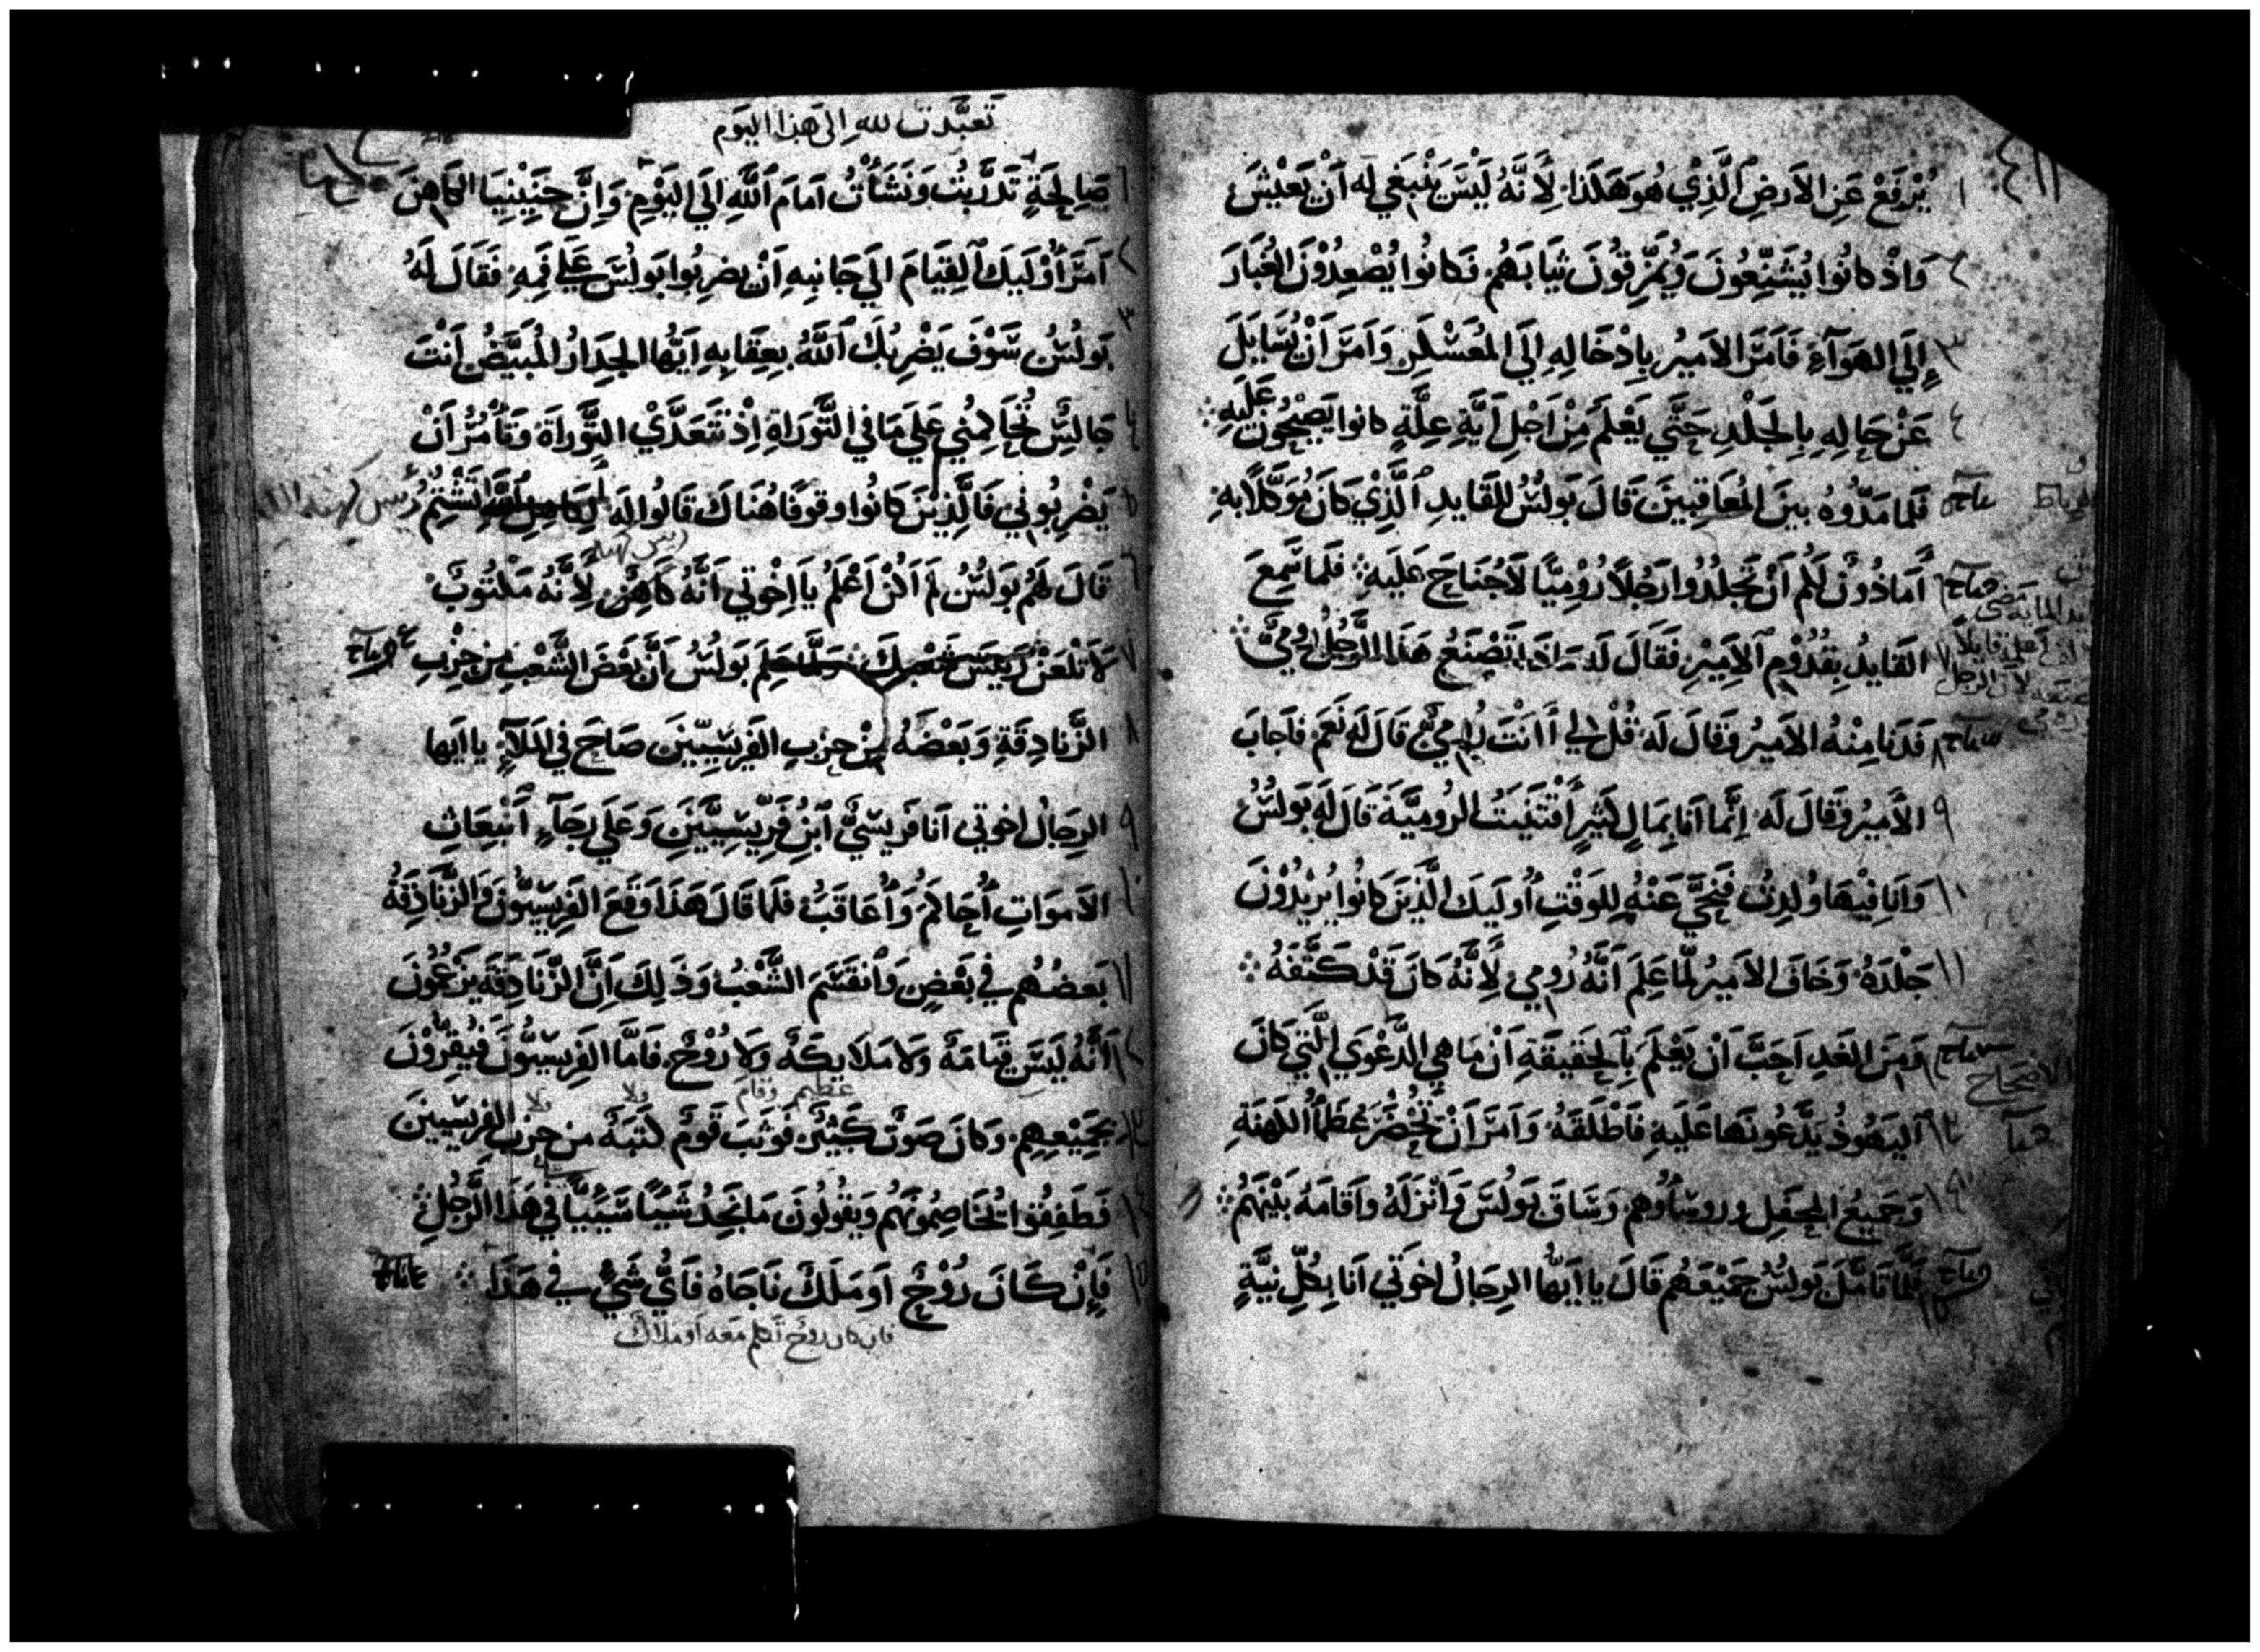 يُرْفَعْ عَنِ الاَرضِ الَّذِيْ هُوَ هَكَذَا لِأَنَّهُ لَيْسَ يَنْبَغي لَه اَنْ يَعْيْشَ
وَاذْ كانُوا يُشَنِّعُونَ وَيُمَزِّقُونَ ثيَابَهُم وَكانُوا يُصْعِدُوْنَ الغُبَارَ
إِلَي الهَوَآءِ فَاَمَرَ الاَمِيرُ بِاِدْخَالِهِ اِلَي المُعَسْكَرِ وَاَمَرَ اَنْ يُسَايَلَ
عَنْ حَالِهِ بِالجَلْدِ حَتَّي يَعْلَمَ مِنْ اَجْلِ اَيَّةِ عِلَّةٍ كانوا يَصِيْحُون عَلَيهِ
فَلَمَا مَدُّوهُ بينَ المُعَاقِبينَ قَالَ بَولُسُ لِلقَايدِ الَّذِيْ كَانَ مُوَكَّلًا بهِ
أَماذُونٌ لَكُم اَنْ تَجلِدُوا رَجُلًا رُوْمِيًّا لَاجُنَاحَ عَلَيهِ فَلَما سَمِعَ
القَايدُ بِقُدُوْمِ الاَمِيْرِ فَقَالَ لَهُ مَاذَا تَصْنَعُ هَذَا الرَّجُلُ رُوْمِيٌّ
فَدَنا مِنْهُ الاَمِيرُ وَقالَ لَه قُلْ لِي أَانْتَ رُوْمِيٌّ قَالَ لَهُ نَعَم فاَجابَ
الاَمِيرُ وَقالَ لَه اِنَّما اَنا بِمَالٍ كَثِيرٍ اَقْتَنَيتُ الرُومِيَّةَ قَالَ لَهُ بَولُسُ
وَاَنا فِيْهَا وُلِدْتُ فَتَنَحَّي عَنْهُ لِلوَقْتِ اُولَيكَ الَّذِينَ كَانُوا يُرِيدُوْنَ
جَلْدَهُ وَخَافَ الاَمِيرُ لَمَّا عَلِمَ اَنَّهُ رُومِي لِأَنَّهُ كَانَ قَدْ كَتَّفَهُ
وَمِنَ الغَدِ اَحَبَّ اَنْ يَعْلَمَ بِالحَقِيقَةِ اَنْ مَاهِي الدَّعْوَي الَّتِي كَانَ
اليَهُوذُ يَدَّعُونَها عَلَيهِ فَاَطْلَقَهُ وَاَمَرَ اَنْ تُحْضَرَ عُظَمآُ الكَهَنَةِ
وَجَميعُ المِحفَلِ وروسَاوُهم وَسَاقَ بَولُسَ وَاَنْزَلَهُ وَاَقامَهُ بَيْنَهُم
فَلَمَّا تَاَمَّلَ بَولُسُ جَمِيْعَهُم قالَ يا اَيُّها الرِجَالُ اخوَتِي اَنا بِكُلِّ نِيَّةٍ
تَعَبَّدت لله اِلى هَذا اليَوم
صَالِحَةٍ تَدَرَّبْتُ وَنَشَأْتُ اَمَامَ اللَّهِ اِلَي اليَوْمِ وَاِنَّ حَنِيْنِيَا الكَاهِنَ
اَمَرَ اُوْلَيكَ القِيَامَ اِلَي جَانِبِهِ اَنْ يضرِبُوا بَولُسَ عَلَي فَمِهِ فَقَالَ لَهُ
بَولُسُ سَوْفَ يَضْرِبُكَ اللَّهُ بِعِقَابِهِ اَيُّها الجِدَارُ المُبَيَّضُ اَنْتَ
جَالِسٌ تُحَاكِمُنِي عَلَي مَا في التَّورَاةِ اِذْ تَتَعَدَّيْ التَّورَاةَ وَتَأْمُرُ اَنْ
يَضْرِبُونِي فَالَّذِيْنَ كَانُوا وقوفًا هُنَاكَ قَالُوا لَه لِكَاهِنِ اللَّهِ تَشْتِمُ
قَالَ لَهُم بَولُسُ لَم اَكُنْ اَعْلَمُ يا اِخْوتي اَنَّهُ كَاهِنٌ لِأَنَّهُ مَكْتُوبٌ
لاَ تَلْعَنْ رَئِيسَ شَعْبِكَ عَلِمَ بَولُسُ اَنَّ بَعْضَ الشَّعْبِ مِن حِزْبِ
الزَّنادِقَةِ وَبَعْضَهُ مِنْ حِزْبِ الفَرِيسِيّينَ صَاحَ في المَلَأِ يا اَيها
الرِجَالُ اخوتي اَنا فَرِيسِيٌّ ابْنُ فَرِّيسِيِّينَ وَعَلَي رَجَآءِ اَنْبِعَاثِ
الاَموَاتِ اُحَاكَمُ وَاُعَاقَبُ فَلَمَا قَالَ هَذَا وَقَعَ الفَرِيسِيُّونَ وَالزَّنَادِقَةُ
بَعضُهُم في بَعْضٍ وَانقَسَمَ الشَّعْبُ وَذَلِكَ اَنَّ الزَّنَادِقَةَ يَزْعُمُونَ
اَنَّهُ لَيسَ قِيَامَةٌ وَلا مَلايكَةٌ وَلا رُوْحٌ فَاَمَّا الفَرِيسِيُّونَ فَيُقِرُّوْنَ
عظيم وقام ولا
بِجَمِيْعِهِم وَكانَ صَوتٌ كَبِيْرٌ فَوثَبَ قَومٌ كتَبَةٌ من حِزبِ الفريسيينَ
فَطَفِقُوا يُخَاصِمُونَهُم وَيَقُولُونَ مَا نَجِدُ شَيْئًا سَيِّئًا في هَذَا الرَّجُلِ
فَإِنْ كَانَ رُوْحٌ اَو مَلَكٌ نَاجَاهُ فَاَيُّ شَيٍّ في هَذَا
فان كان روحٌ تكلم معه او ملاكٌ